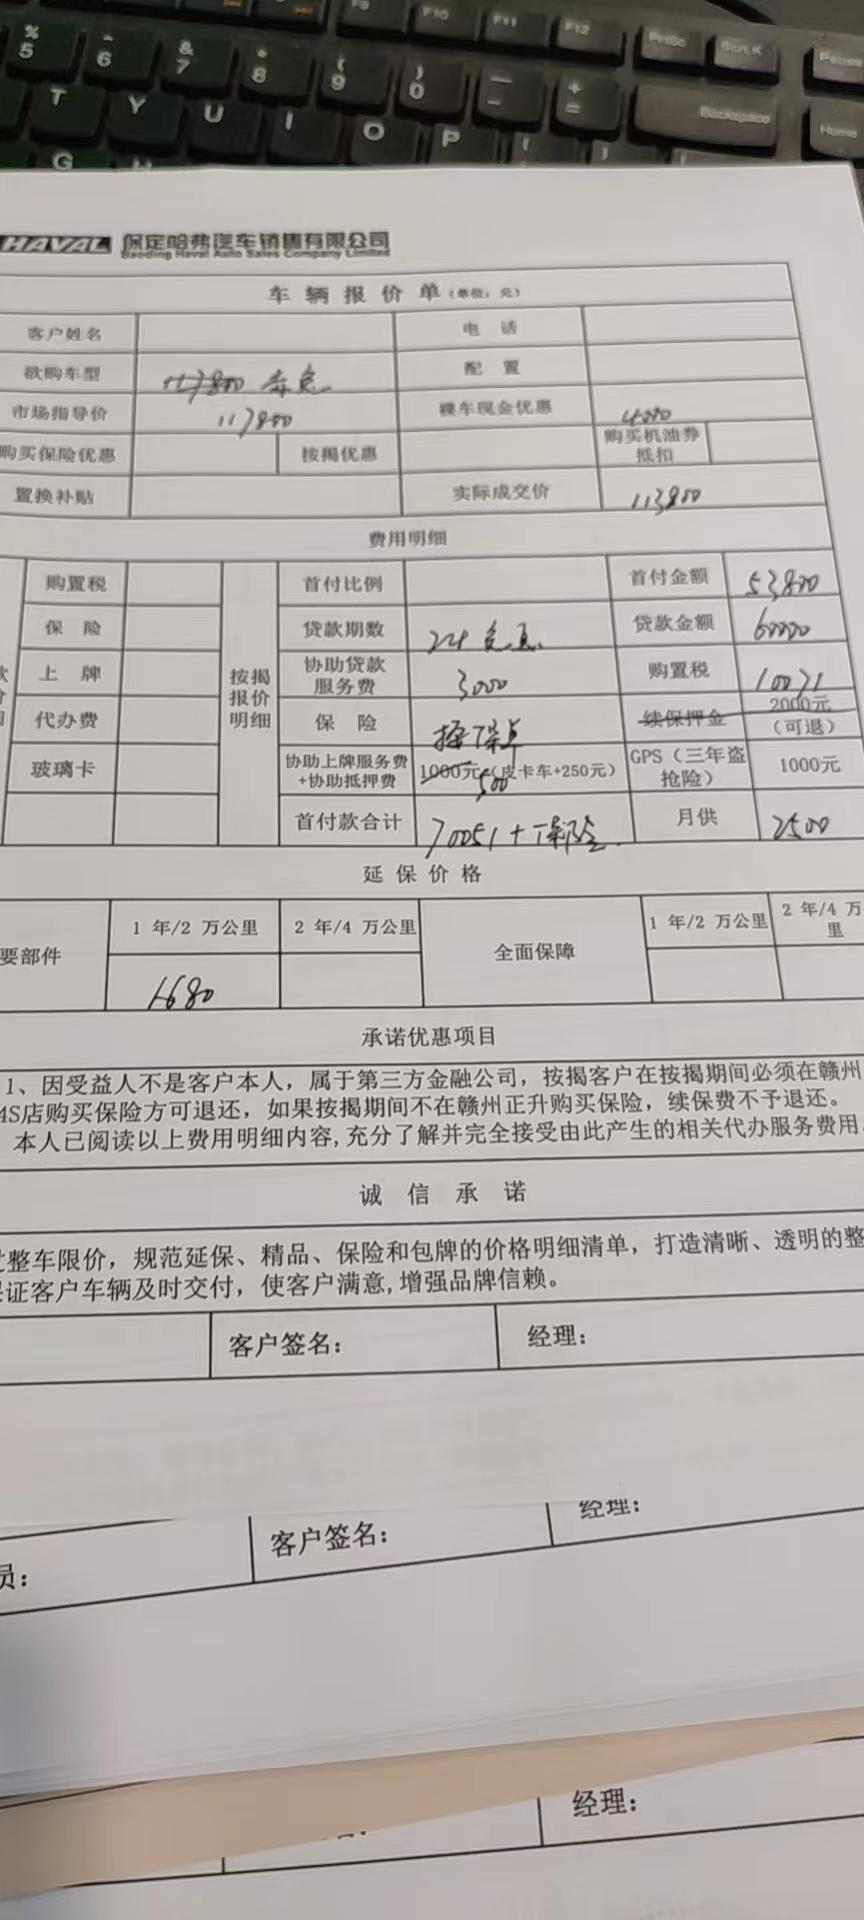 % 5 ^ 6 & 7 * 8 ( 9 ) 0 — - + =
F9 F10 F11 F12 PrtSc ScrLK Pause
T Y U I O P Backspace Home
G H
HAVAL 保定哈弗汽车销售有限公司
Baoding Haval Auto Sales Company Limited
车辆报价单(单位：元)
客户姓名 电话
欲购车型 117800 赤兔 配置
市场指导价 117800 裸车现金优惠 4000
购买保险优惠 按揭优惠 购买机油券
抵扣
置换补贴 实际成交价 113800
费用明细
购置税 首付比例 首付金额 53800
保险 贷款期数 24免息 贷款金额 60000
上牌 按揭报价明细 协助贷款
服务费 3000 购置税 10071
代办费 保险 续保押金 2000元
(可退)
玻璃卡 协助上牌服务费
+协助抵押费 1000元(皮卡车+250元) 500 GPS（三年盗
抢险） 1000元
首付款合计 70051+保险 月供 2500
延保价格
要部件 1 年/2 万公里 2 年/4 万公里 全面保障 1 年/2 万公里 2 年/4 万
里
1680
承诺优惠项目
1、因受益人不是客户本人，属于第三方金融公司，按揭客户在按揭期间必须在赣州
4S店购买保险方可退还，如果按揭期间不在赣州正升购买保险，续保费不予退还。
本人已阅读以上费用明细内容,充分了解并完全接受由此产生的相关代办服务费用
诚信承诺
整车限价，规范延保、精品、保险和包牌的价格明细清单，打造清晰、透明的整
证客户车辆及时交付，使客户满意,增强品牌信赖。
客户签名： 经理：
员： 客户签名： 经理：
经理：